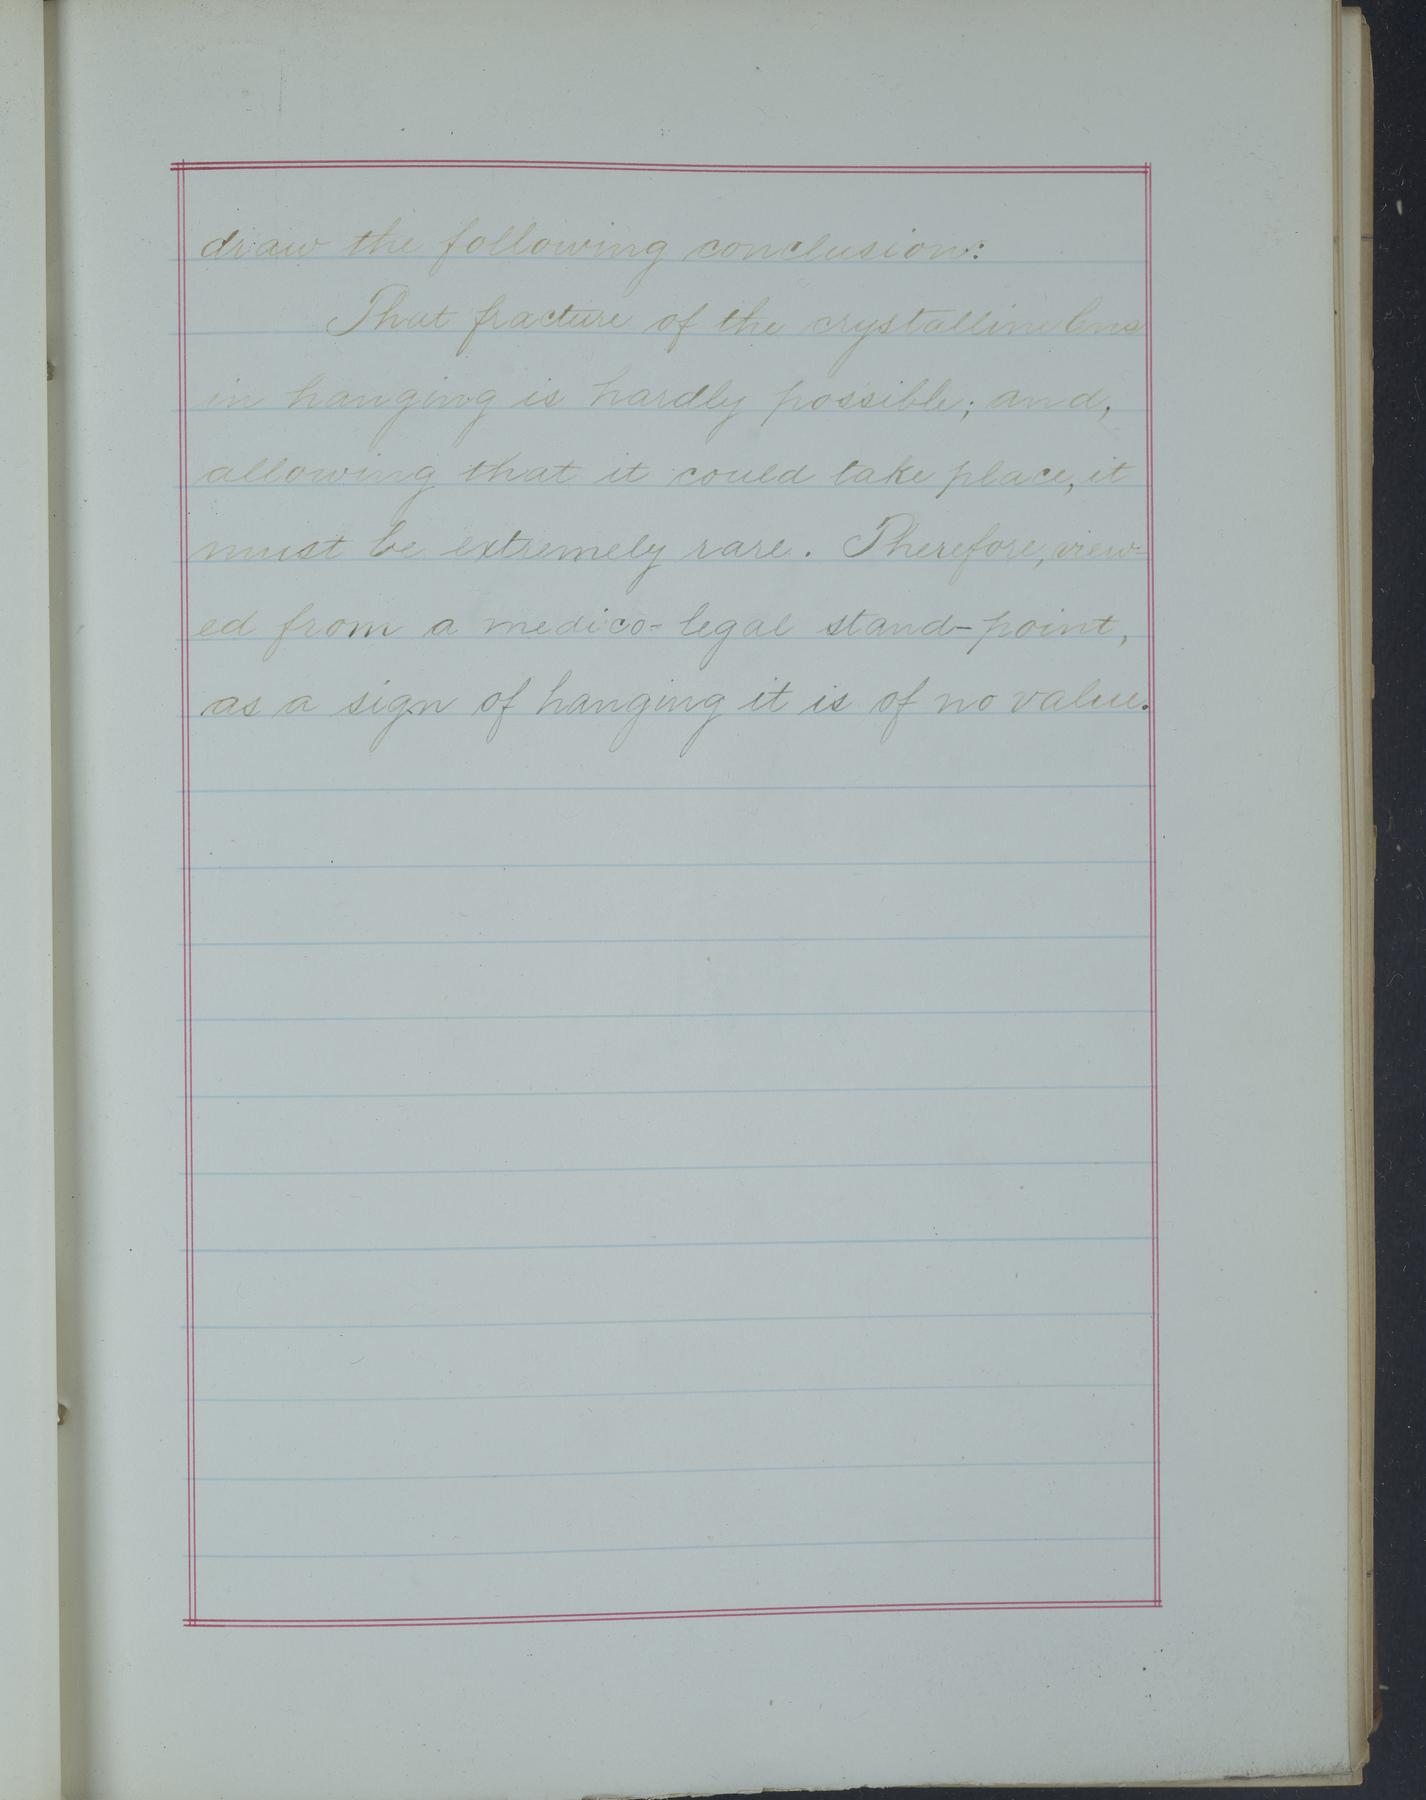 draw the following conclusion:
That fracture of the crystalline lens
in hanging is hardly possible; and,
allowing that it could take place, it
must be extremely rare. Therefore, view-
ed from a medico-legal stand-point,
as a sign of hanging it is of no value.